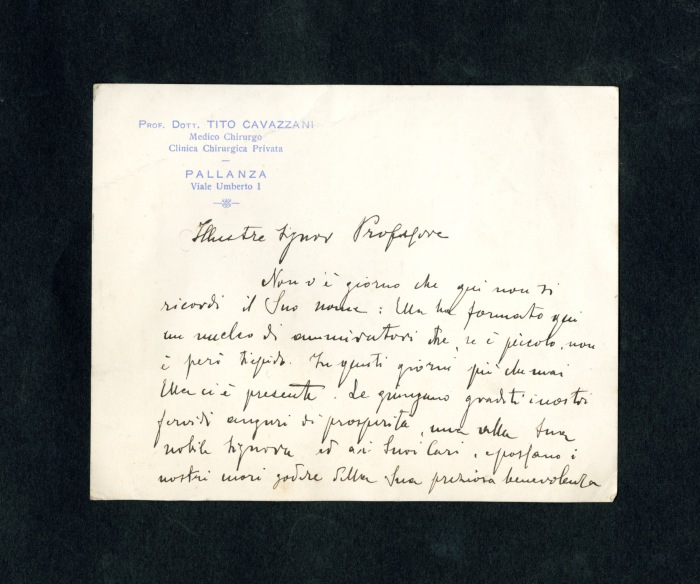 PROF. DOTT. TITO CAVAZZANI
Medico Chirurgo
Clinica Chirurgica Privata
PALLANZA
Viale Umberto I
Illustre Signor Professore
Non v'è giorno che qui non si
ricordi il Suo nome: Ella ha formato qui
un nucleo di ammiratori che, se è piccolo, non
è però tiepido. In questi giorni più che mai
Ella ci è presente. Le giungano graditi i nostri
fervidi auguri di prosperità, alla Sua
nobile Signora ed ai Suoi Cari, e possano i
nostri cuori godere della Sua preziosa benevolenza